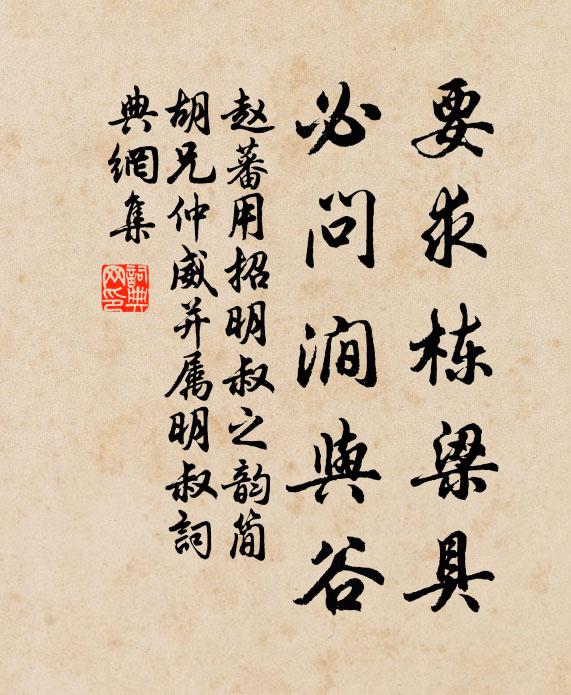 要求栋梁具
必问涧與谷
赵蕃用招明叔之韵简
胡兄仲威并属明叔詞
典網集
詞典
网印